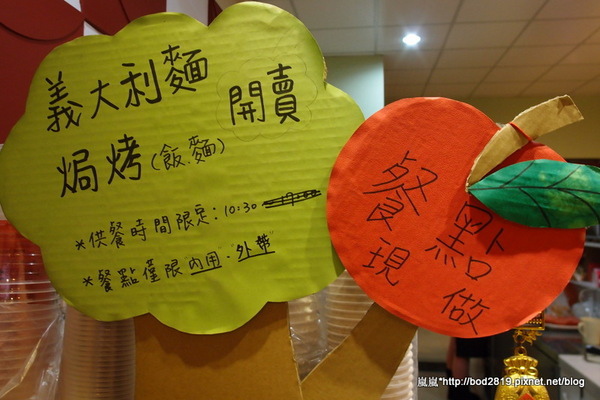 義大利麵
開賣
焗烤(飯.麵)
*供餐時間限定:10:30
*餐點僅限內用."外帶"
餐點
現做
嵐嵐*http://bod2819.pixnet.net/blog